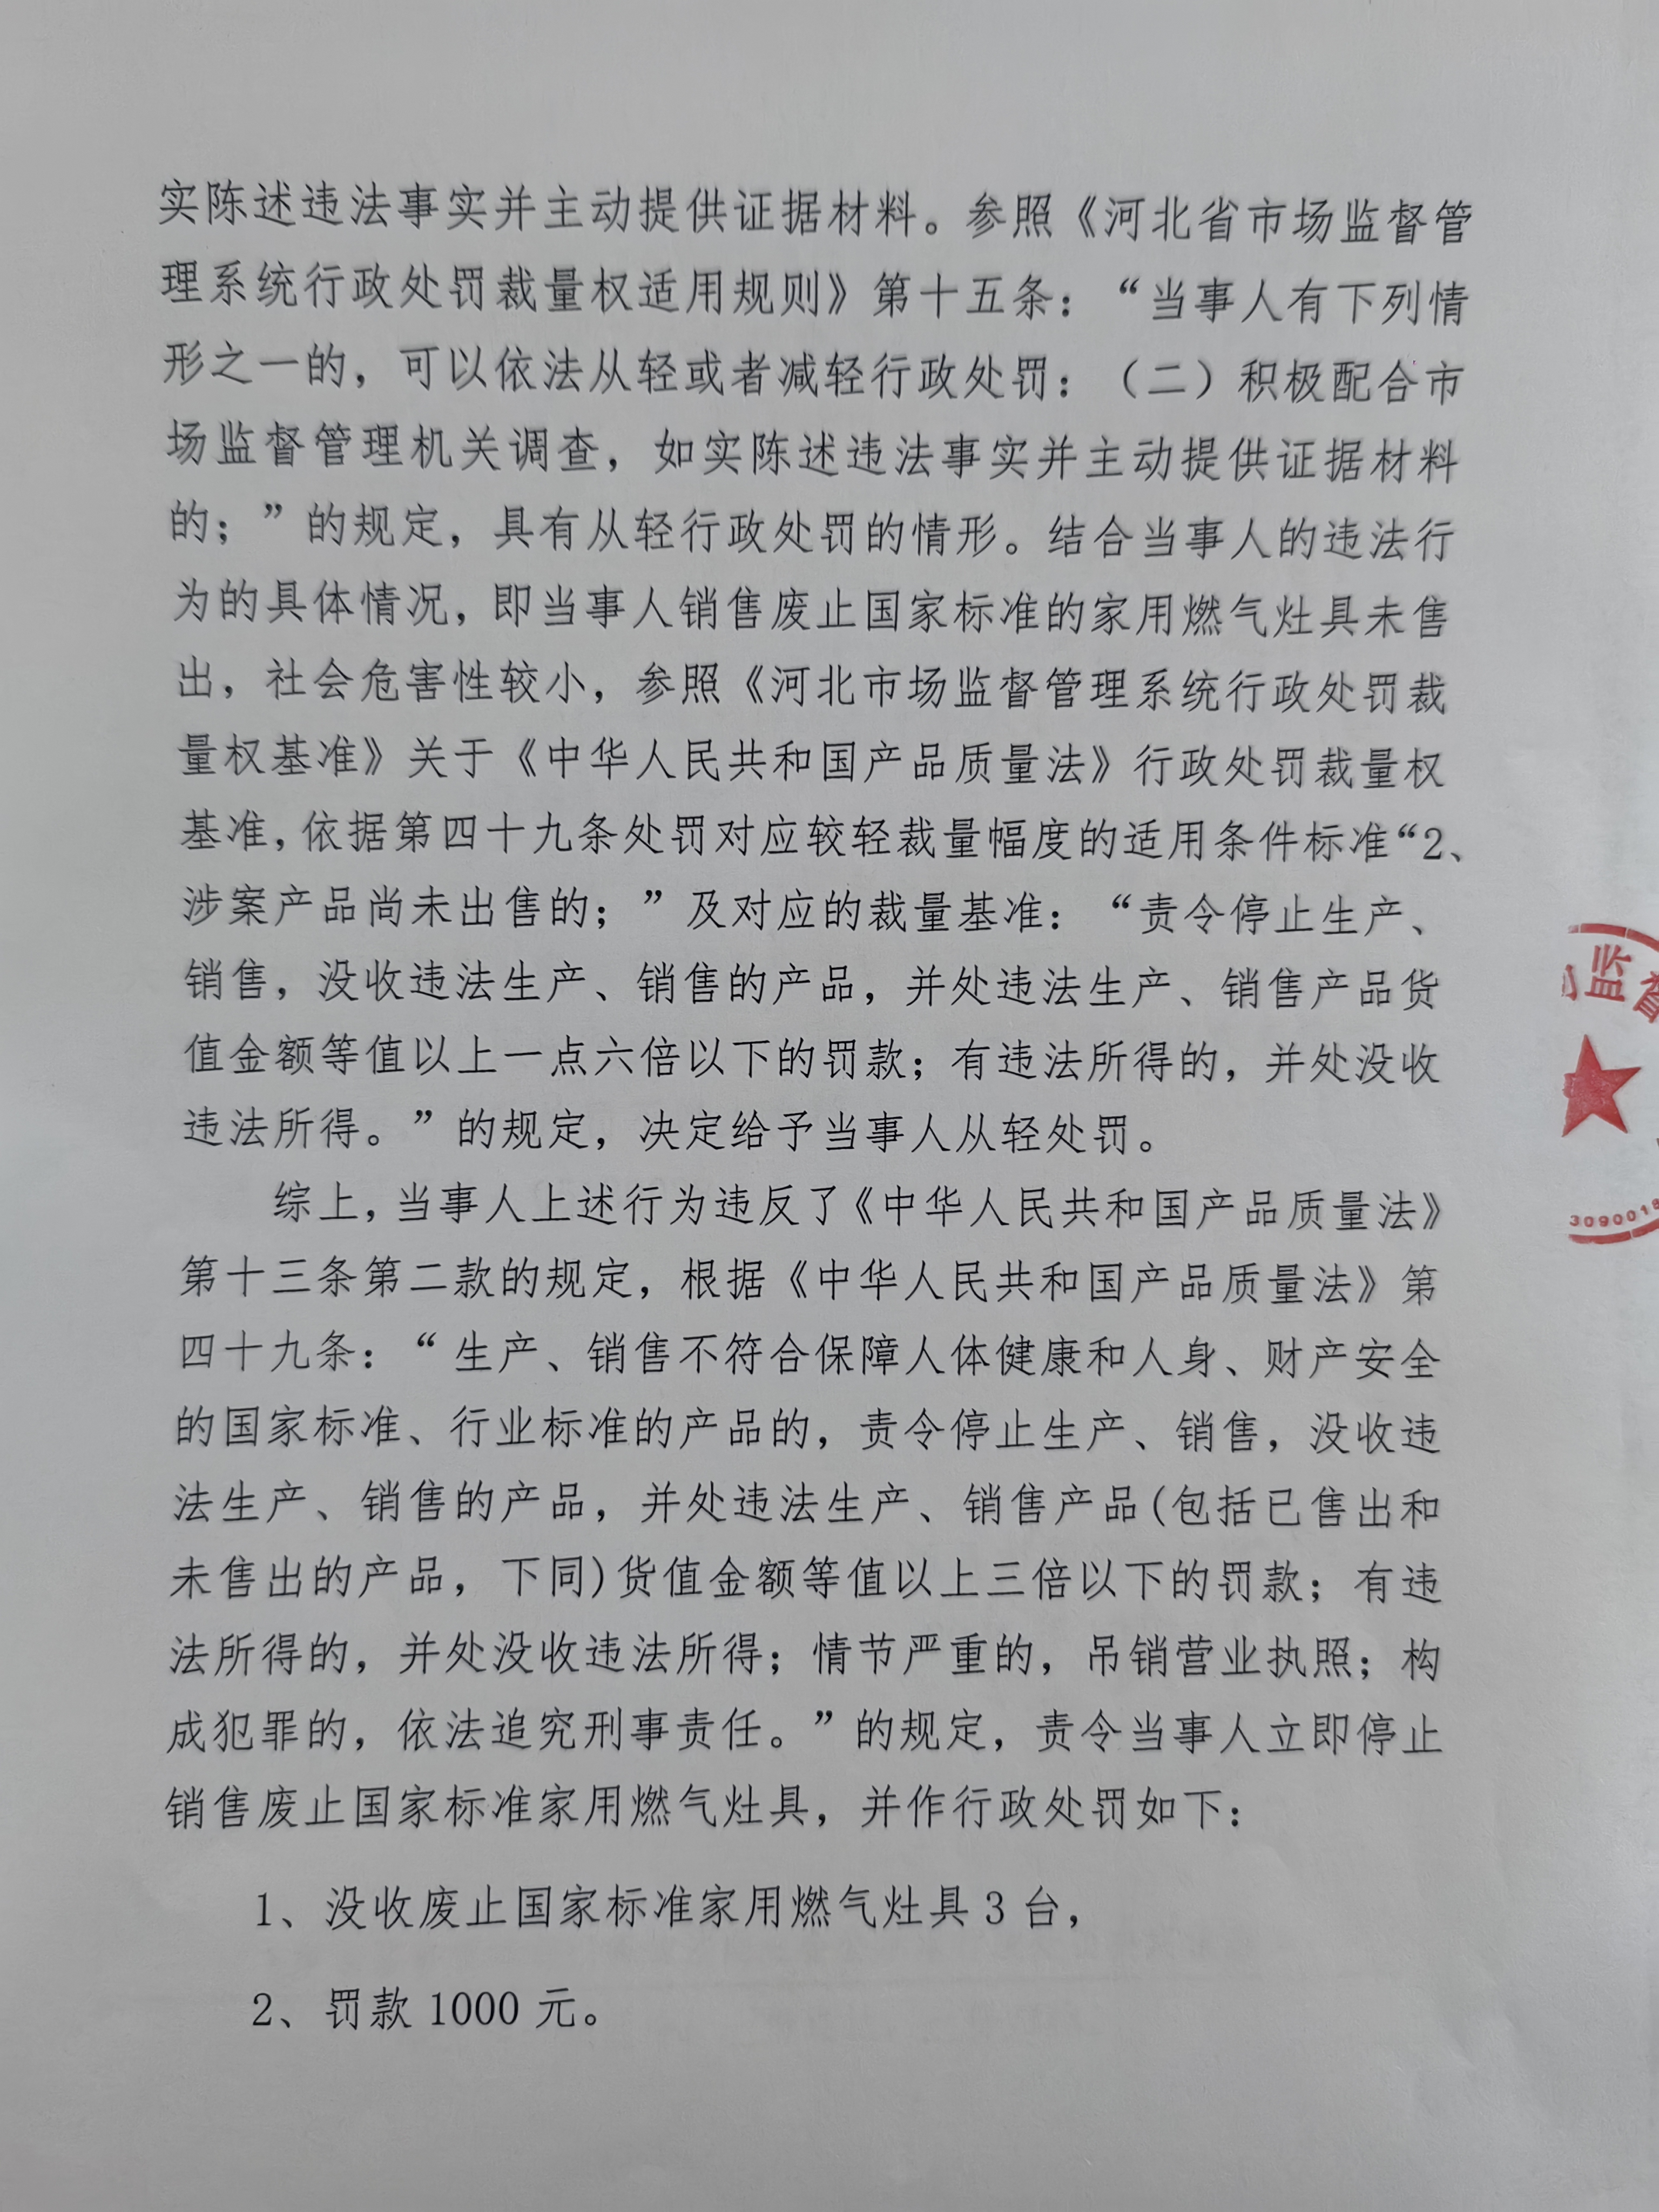 实陈述违法事实并主动提供证据材料。参照《河北省市场监督管
理系统行政处罚裁量权适用规则》第十五条：“当事人有下列情
形之一的，可以依法从轻或者减轻行政处罚：（二）积极配合市
场监督管理机关调查，如实陈述违法事实并主动提供证据材料
的；”的规定，具有从轻行政处罚的情形。结合当事人的违法行
为的具体情况，即当事人销售废止国家标准的家用燃气灶具未售
出，社会危害性较小，参照《河北市场监督管理系统行政处罚裁
量权基准》关于《中华人民共和国产品质量法》行政处罚裁量权
基准，依据第四十九条处罚对应较轻裁量幅度的适用条件标准“2、
涉案产品尚未出售的；”及对应的裁量基准：“责令停止生产、
销售，没收违法生产、销售的产品，并处违法生产、销售产品货
值金额等值以上一点六倍以下的罚款；有违法所得的，并处没收
违法所得。”的规定，决定给予当事人从轻处罚。
综上，当事人上述行为违反了《中华人民共和国产品质量法》
第十三条第二款的规定，根据《中华人民共和国产品质量法》第
四十九条：“生产、销售不符合保障人体健康和人身、财产安全
的国家标准、行业标准的产品的，责令停止生产、销售，没收违
法生产、销售的产品，并处违法生产、销售产品(包括已售出和
未售出的产品，下同)货值金额等值以上三倍以下的罚款；有违
法所得的，并处没收违法所得；情节严重的，吊销营业执照；构
成犯罪的，依法追究刑事责任。”的规定，责令当事人立即停止
销售废止国家标准家用燃气灶具，并作行政处罚如下：
1、没收废止国家标准家用燃气灶具 3 台，
2、罚款 1000 元。
监督
3090018